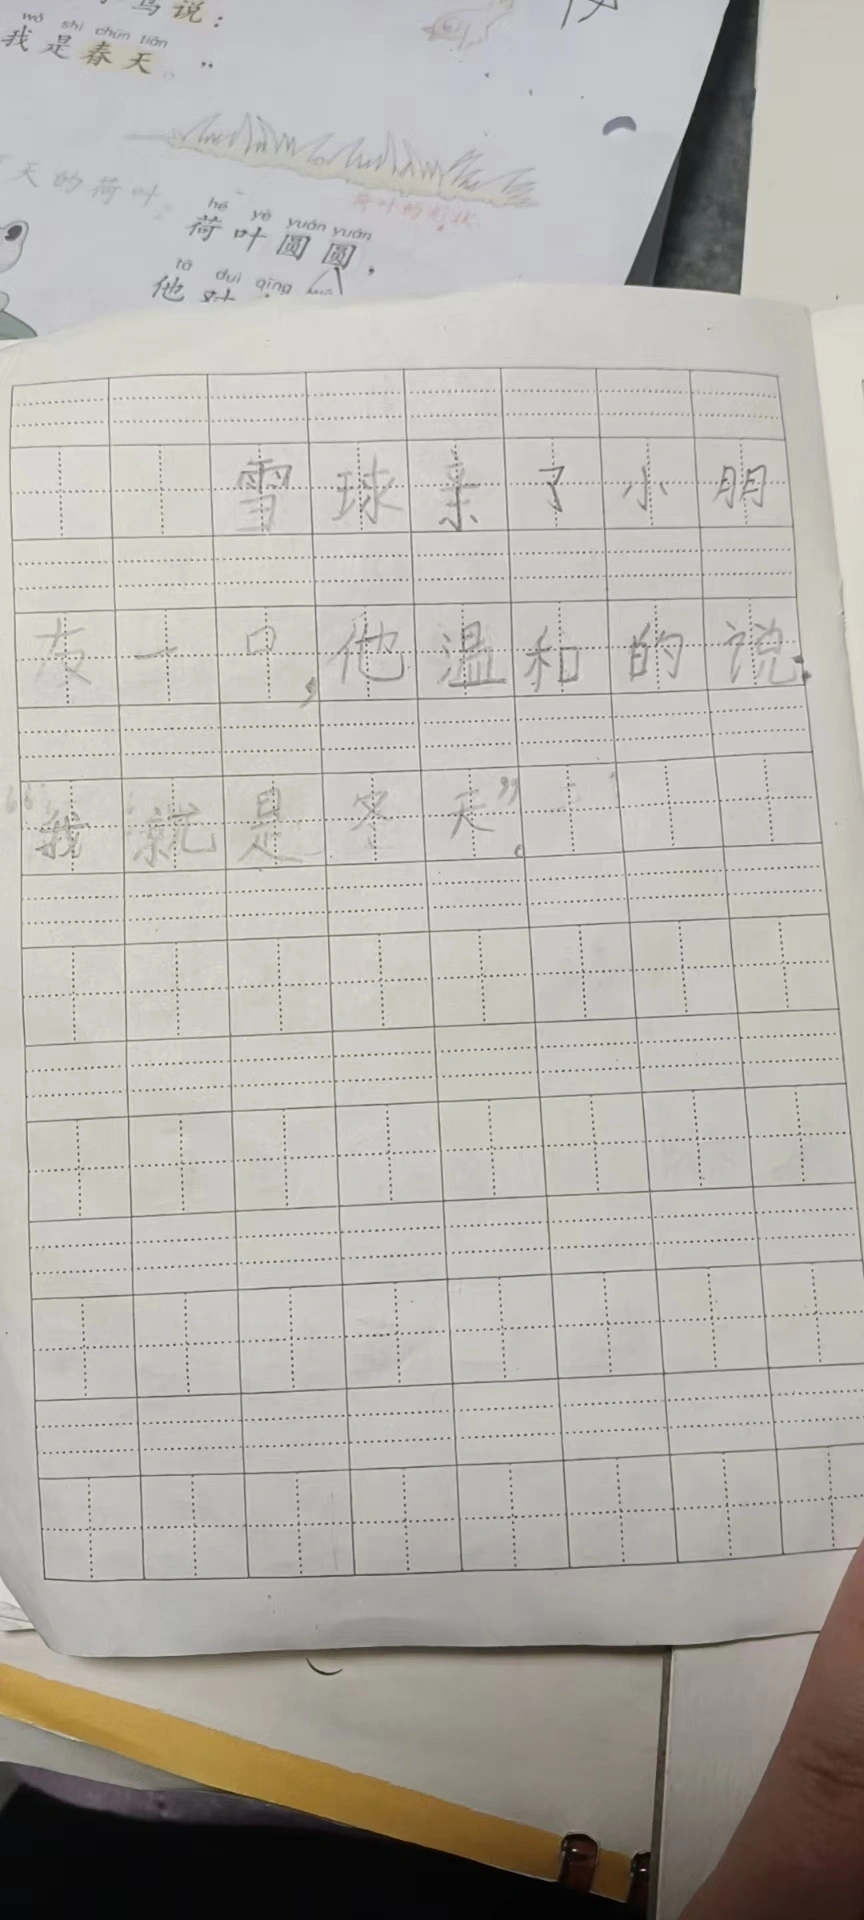 鸟说：
wǒ shì chūn tiān
我是春天。”
天的荷叶。
荷叶的形状。
hé yè yuán yuán
荷叶圆圆，
tā duì qīng
他对
雪球亲了小朋
友一口，他温和的说：
“我就是冬天”。